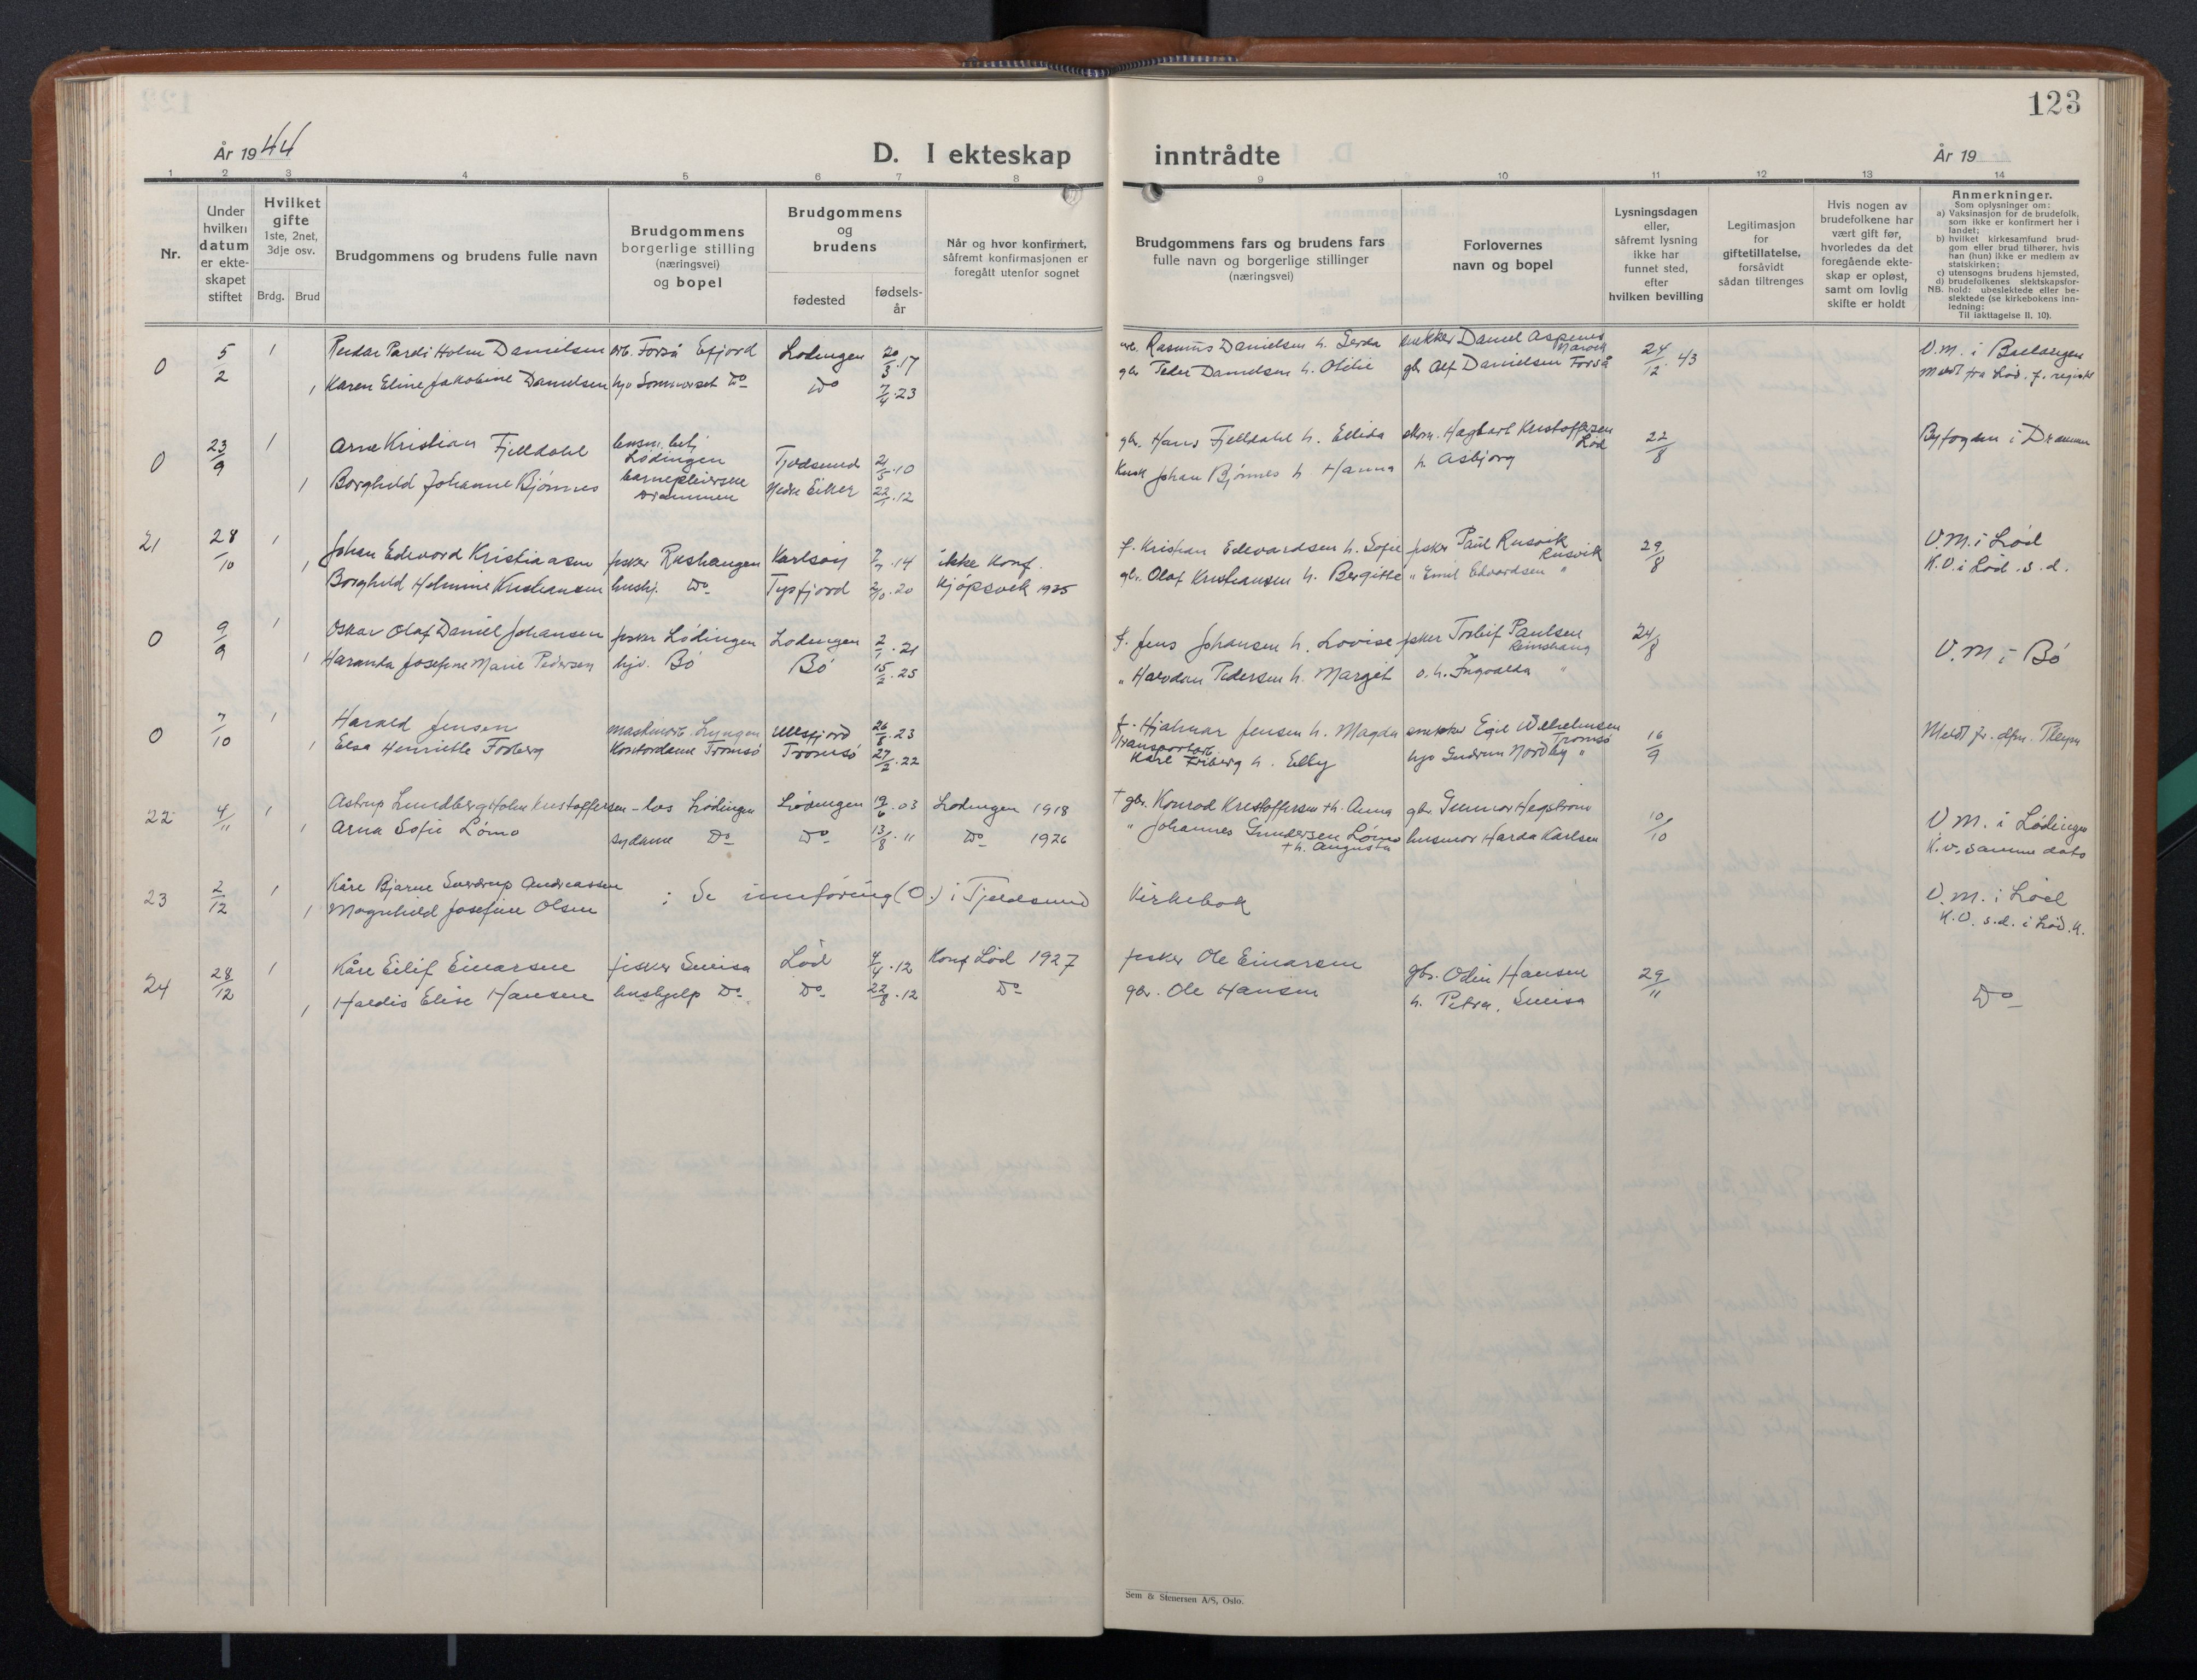 123
År 19 44
D. I ekteskap inntrådte
År 19
1 2 3 4 5 6 7 8 9 10 11 12 13 14
Nr.
Under hvilken datum er ekteskapet stiftet
Hvilket gifte
1ste, 2net, 3dje osv.
Brdg. Brud
Brudgommens og brudens fulle navn
Brudgommens borgerlige stilling (næringsvei) og bopel
Brudgommens og brudens
fødested
fødselsår
Når og hvor konfirmert, såfremt konfirmasjonen er foregått utenfor sognet
Brudgommens fars og brudens fars fulle navn og borgerlige stillinger (næringsvei)
Forlovernes navn og bopel
Lysningsdagen eller, såfremt lysning ikke har funnet sted, efter hvilken bevilling
Legitimasjon for giftetillatelse, forsåvidt sådan tiltrenges
Hvis nogen av brudefolkene har vært gift før, hvorledes da det foregående ekteskap er opløst, samt om lovlig skifte er holdt
Anmerkninger.
Som oplysninger om:
a) Vaksinasjon for de brudefolk, som ikke er konfirmert her i landet;
b) hvilket kirkesamfund brudgom eller brud tilhører, hvis han (hun) ikke er medlem av statskirken;
c) utensogns brudens hjemsted,
d) brudefolkenes slektskapsforhold: ubeslektede eller beslektede (se kirkebokens innledning:
NB.
Til iakttagelse II. 10).
0 5/2 1 Holm Danielsen arb. Forså Efjord Lødingen 20/3.17 Rasmus Danielsen h. Gerda snekker Daniel Aspenes 24/12.43 V.M. i Ballangen
1 Karen Eline Jakobine Danielsen hjv Sommerset Do Do 7/4.23 gbr Peder Danielsen h. Otilie gbr Alf Danielsen Forså Meldt fra Lød. f. register
0 23/9 1 Arne Kristian Fjelldahl lensm. betj Lødingen Tjeldsund 2/5.10 gbr. Hans Fjelldahl h. Ellida Hagbart Kristoffersen Lød 22/8 Byfogden i Drammen
1 Borghild Johanne Bjørnnes barnepleierske Drammen Nedre Eiker 22/1.12 Kusk Johan Bjørnes h Hanna h. Asbjørg
21 28/10 1 Johan Edevard Kristiansen fisker Rushaugen Karlsøy 7/7.14 ikke konf. f. Kristian Edevardsen h. Sofie fisker Paul Rusvik Rusvik 29/8 V.M. i Lød
1 Borghild Helmine Kristiansen hushj. Do Tysfjord 2/10.20 Kjøpsvik 1935 gbr. Olaf Kristiansen h. Bergitte " Emil Edvardsen " K.V. i Lød. s.d.
0 9/9 1 Oskar Olaf Daniel Johansen fisker Lødingen Lødingen 2/1.21 f. Jens Johansen h. Lovise fisker Torleif Paulsen 24/8 V.M. i Bø
1 Josefine Marie Pedersen hjv. Bø Bø 15/2.25 " Halvdan Pedersen h. Margit o.h. Ingvalda "
0 7/10 1 Harald Jensen maskinarb. Lyngen Ullsfjord 26/8.23 f. Hjalmar Jensen h. Magda snekker Egil Wilhelmsen Tromsø 16/9
1 Elsa Henriette Forberg Kontordame Tromsø Tromsø 27/2.22 Transportarb. Kåre h. Elly hjv Gudrun Nordby "
22 4/11 1 Astrup Lundberg Holm Kristoffersen los Lødingen Lødingen 19/6.03 Lødingen 1918 † gbr. Konrad Kristoffersen †h. Anna gbr. Gunnar Hegstrøm 10/10 V.M. i Lødingen
1 Arna Sofie Lømo sydame Do Do 13/8.11 Do 1926 " Johannes Gundersen Lømo †h. Augusta husmor Harda Karlsen K.v. samme dato
23 2/12 1 Kåre Bjarne Sverdrup Andreassen : Se innføring (0.) i Tjeldsund Kirkebok V.M. i Lød
1 Magnhild Josefine Olsen K.V. s.d. i Lød. K.
24 28/12 1 Kåre Eilif Einarsen fisker Sneisa Lød 4/4.12 Konf Lød 1927 fisker Ole Einarsen gbr. Odin Hansen 29/11 Do
1 Haldis Elise Hansen hushjelp Do Do 22/8.12 Do gbr. Ole Hansen h. Petra, Sneisa
Sem & Stenersen A/S, Oslo.